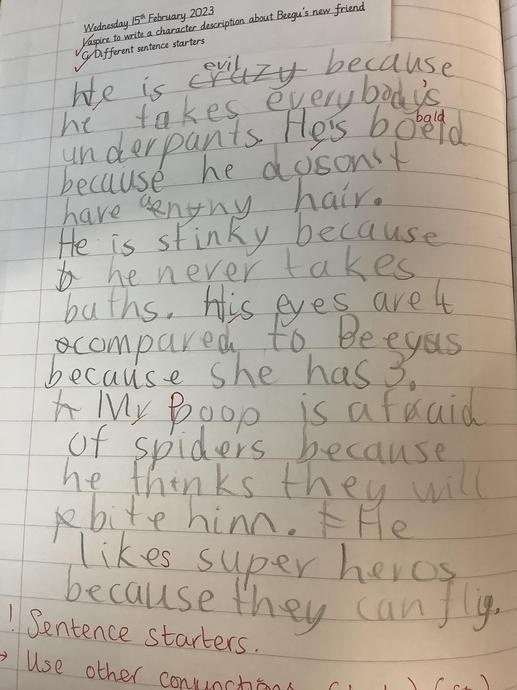 Wednesday 15th February 2023
I aspire to write a character description about Beegu's new friend
G Different sentence starters
evil
He is crazy because
he takes everybody's
bald
underpants. He's boeld
because he dosonst
have enyny hair.
He is stinky because
he never takes
baths. His eyes are 4
compared to Beegus
because she has 3.
Mr Poop is afraid
of spiders because
he thinks they will
bite him. He
likes super heros
because they can fliy.
! Sentence starters.
→ Use other conjunctions